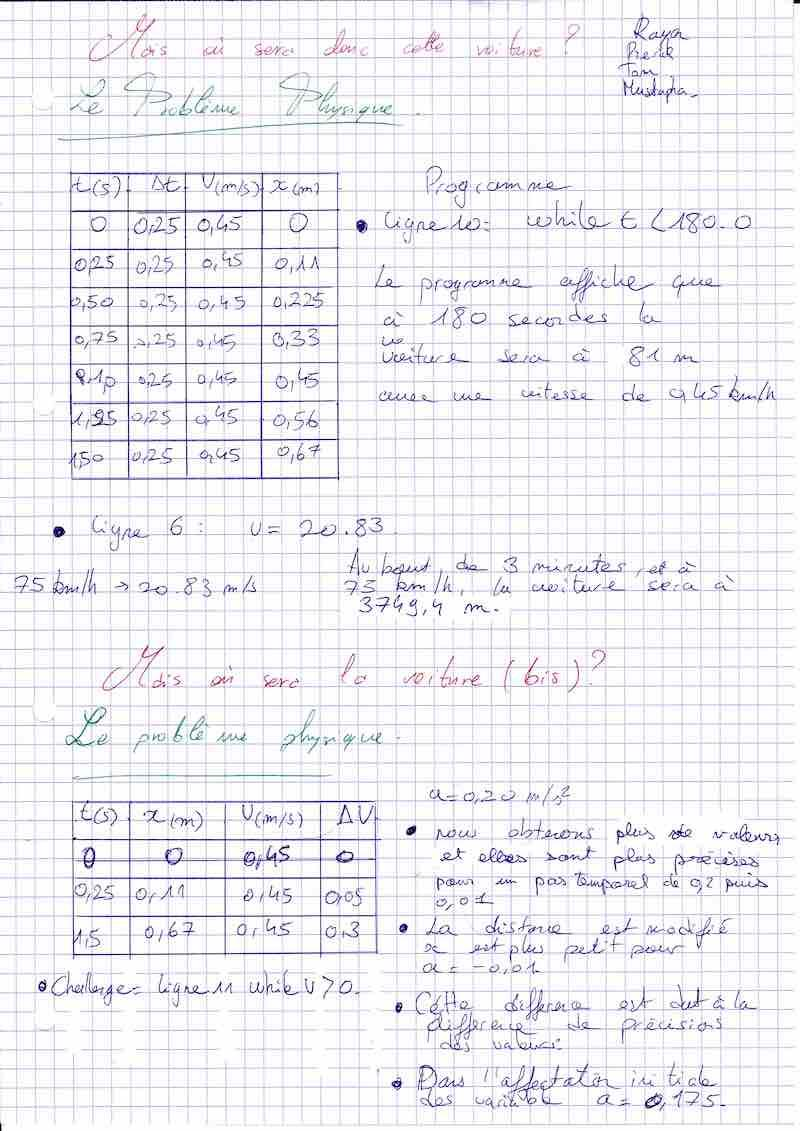 Mais où sera donc cette voiture ?
Rayan
Pierre
Tom
Mustapha
Le Problème Physique.
t(s) Δt V(m/s) x(m)
0 0,25 0,45 0
0,25 0,25 0,45 0,11
0,50 0,25 0,45 0,225
0,75 0,25 0,45 0,33
1,0 0,25 0,45 0,45
1,25 0,25 0,45 0,56
1,50 0,25 0,45 0,67
Programme
• ligne 10: while t < 180.0
Le programme affiche que
à 180 secondes la
voiture sera à 81 m
avec une vitesse de 0,45 km/h
• ligne 6 : v = 20.83
75 km/h → 20.83 m/s
Au bout de 3 minutes, et à
75 km/h, la voiture sera à
3749,4 m.
Mais où sera la voiture (bis) ?
Le problème physique.
t(s) x(m) V(m/s) ΔV
0 0 0,45 0
0,25 0,11 0,45 0,05
1,5 0,67 0,45 0,3
• Challenge = ligne 11 while V > 0.
a = 0,20 m/s²
• nous obtenons plus de valeurs
et elles sont plus précises
pour un pas temporel de 0,2 puis
0,01
• La distance est modifié
x est plus petit pour
a = -0,01
• Cette difference est dut à la
différence de précisions
des valeurs.
• Dans l'affectation initiale
des variable a = 0,175.